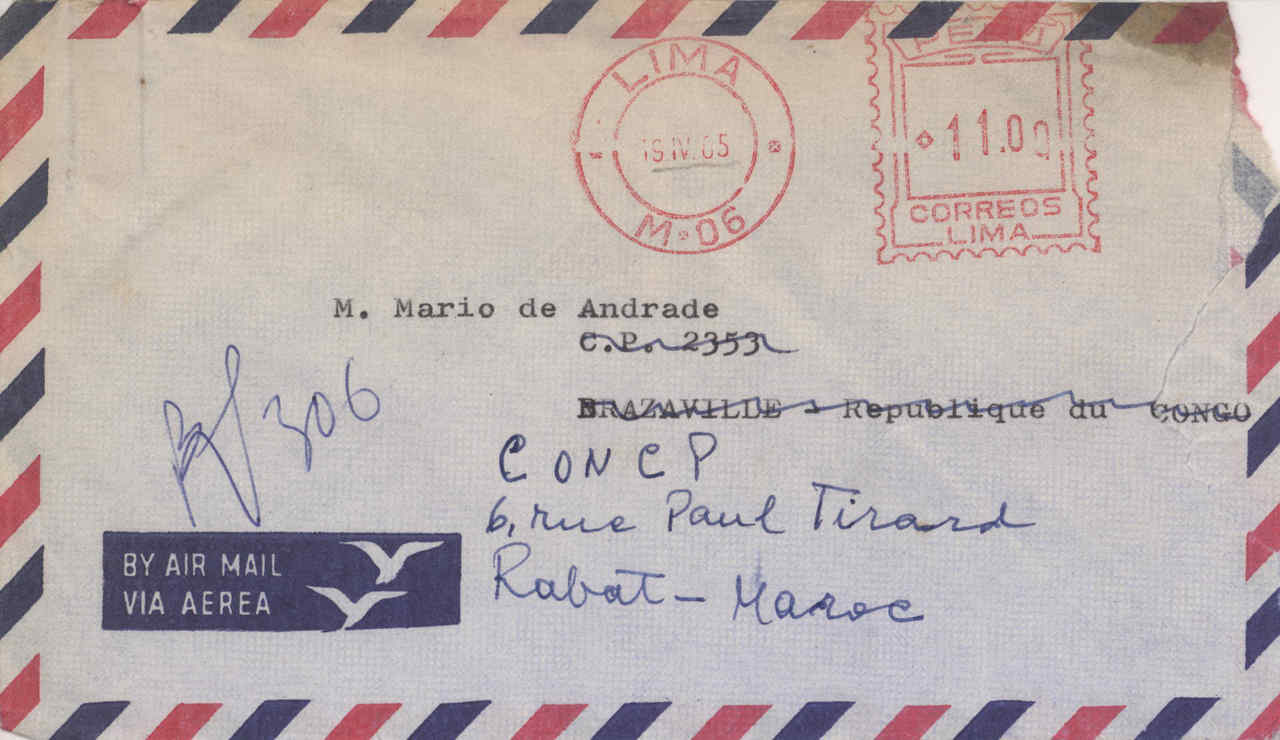 PERU
LIMA
11.00
19.IV.65
CORREOS
LIMA
M.06
M. Mario de Andrade
C.P. 2353
BRAZAVILLE - Republique du CONGO
306
CONCP
6, rue Paul Tirard
Rabat - Maroc
BY AIR MAIL
VIA AEREA